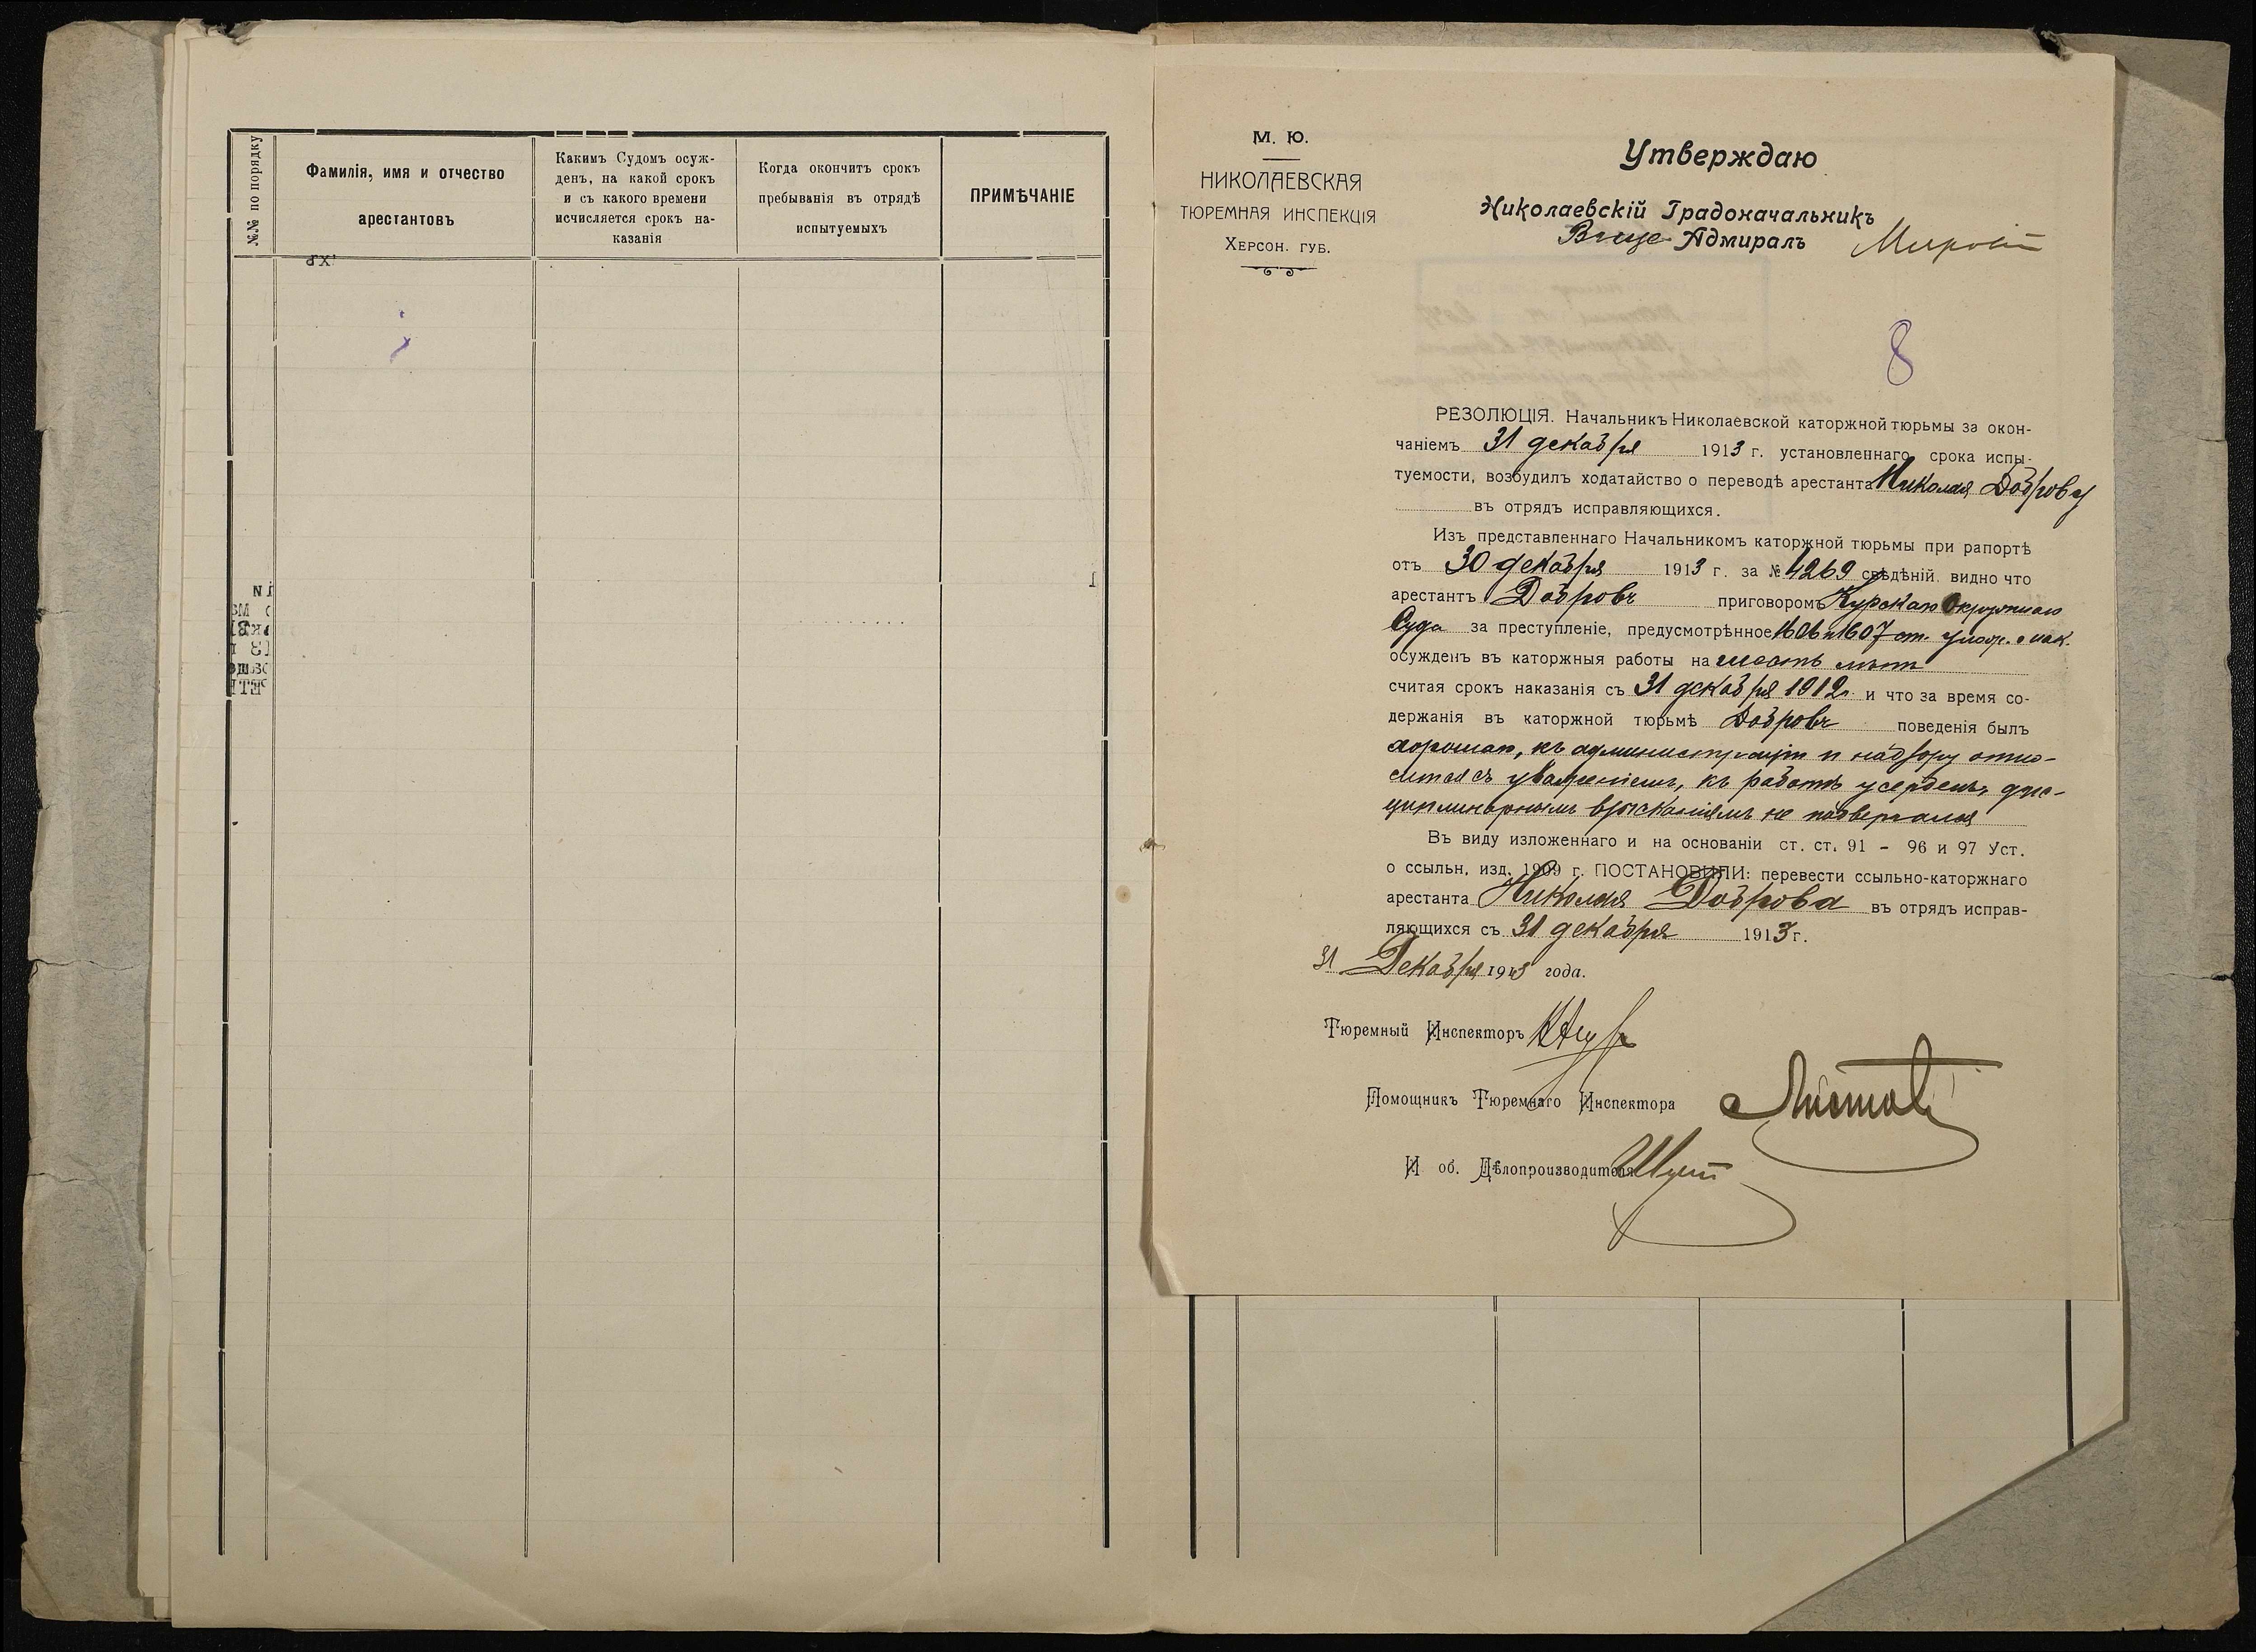 №№ по порядку
Фамилія, имя и отчество
арестантовъ
Какимъ Судомъ осуж-
денъ, на какой срокъ
и съ какого времени
исчисляется срокъ на-
казанія
Когда окончитъ срокъ
пребыванія въ отрядѣ
испытуемыхъ
ПРИМѢЧАНІЕ
М. Ю.
НИКОЛАЕВСКАЯ
ТЮРЕМНАЯ ИНСПЕКЦІЯ
ХЕРСОН. ГУБ.
Утверждаю
Николаевскій Градоначальникъ
Вице-Адмиралъ
8
РЕЗОЛЮЦІЯ. Начальникъ Николаевской каторжной тюрьмы за окон-
чаніемъ 31 декабря 1913 г. установленнаго срока испы-
туемости, возбудилъ ходатайство о переводѣ арестанта Николая Доброва
въ отрядъ исправляющихся.
Изъ представленнаго Начальникомъ каторжной тюрьмы при рапортѣ
отъ 30 декабря 1913 г. за № 4269 свѣдѣній, видно что
арестантъ Добровъ приговоромъ Курскаго Окружнаго
Суда за преступленіе, предусмотрѣнное 1606 и 1607 ст. улож. о нак.
осужденъ въ каторжныя работы на шесть лѣтъ
считая срокъ наказанія съ 31 декабря 1912 г. и что за время со-
держанія въ каторжной тюрьмѣ Добровъ поведенія былъ
хорошаго, къ администраціи и надзору отно-
сится съ уваженіемъ, къ работѣ усерденъ, дис-
циплинарнымъ взысканіямъ не подвергался
Въ виду изложеннаго и на основаніи ст. ст. 91 - 96 и 97 Уст.
о ссыльн, изд. 1909 г. ПОСТАНОВИЛИ: перевести ссыльно-каторжнаго
арестанта Николая Доброва въ отрядъ исправ-
ляющихся съ 31 декабря 1913 г.
31 Декабря 1913 года.
Тюремный Инспекторъ
Помощникъ Тюремнаго Инспектора
И об. Дѣлопроизводителя